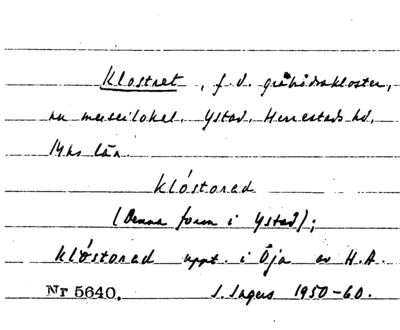 Klostret, f.d. gråbrödrakloster,
nu museilokal. Ystad, Herrestads hd,
Mhs län.
klóstorad
(Denna form i Ystad);
klø̀storad uppt. i Öja av H.A.
Nr 5640. I. Ingers 1950-60.